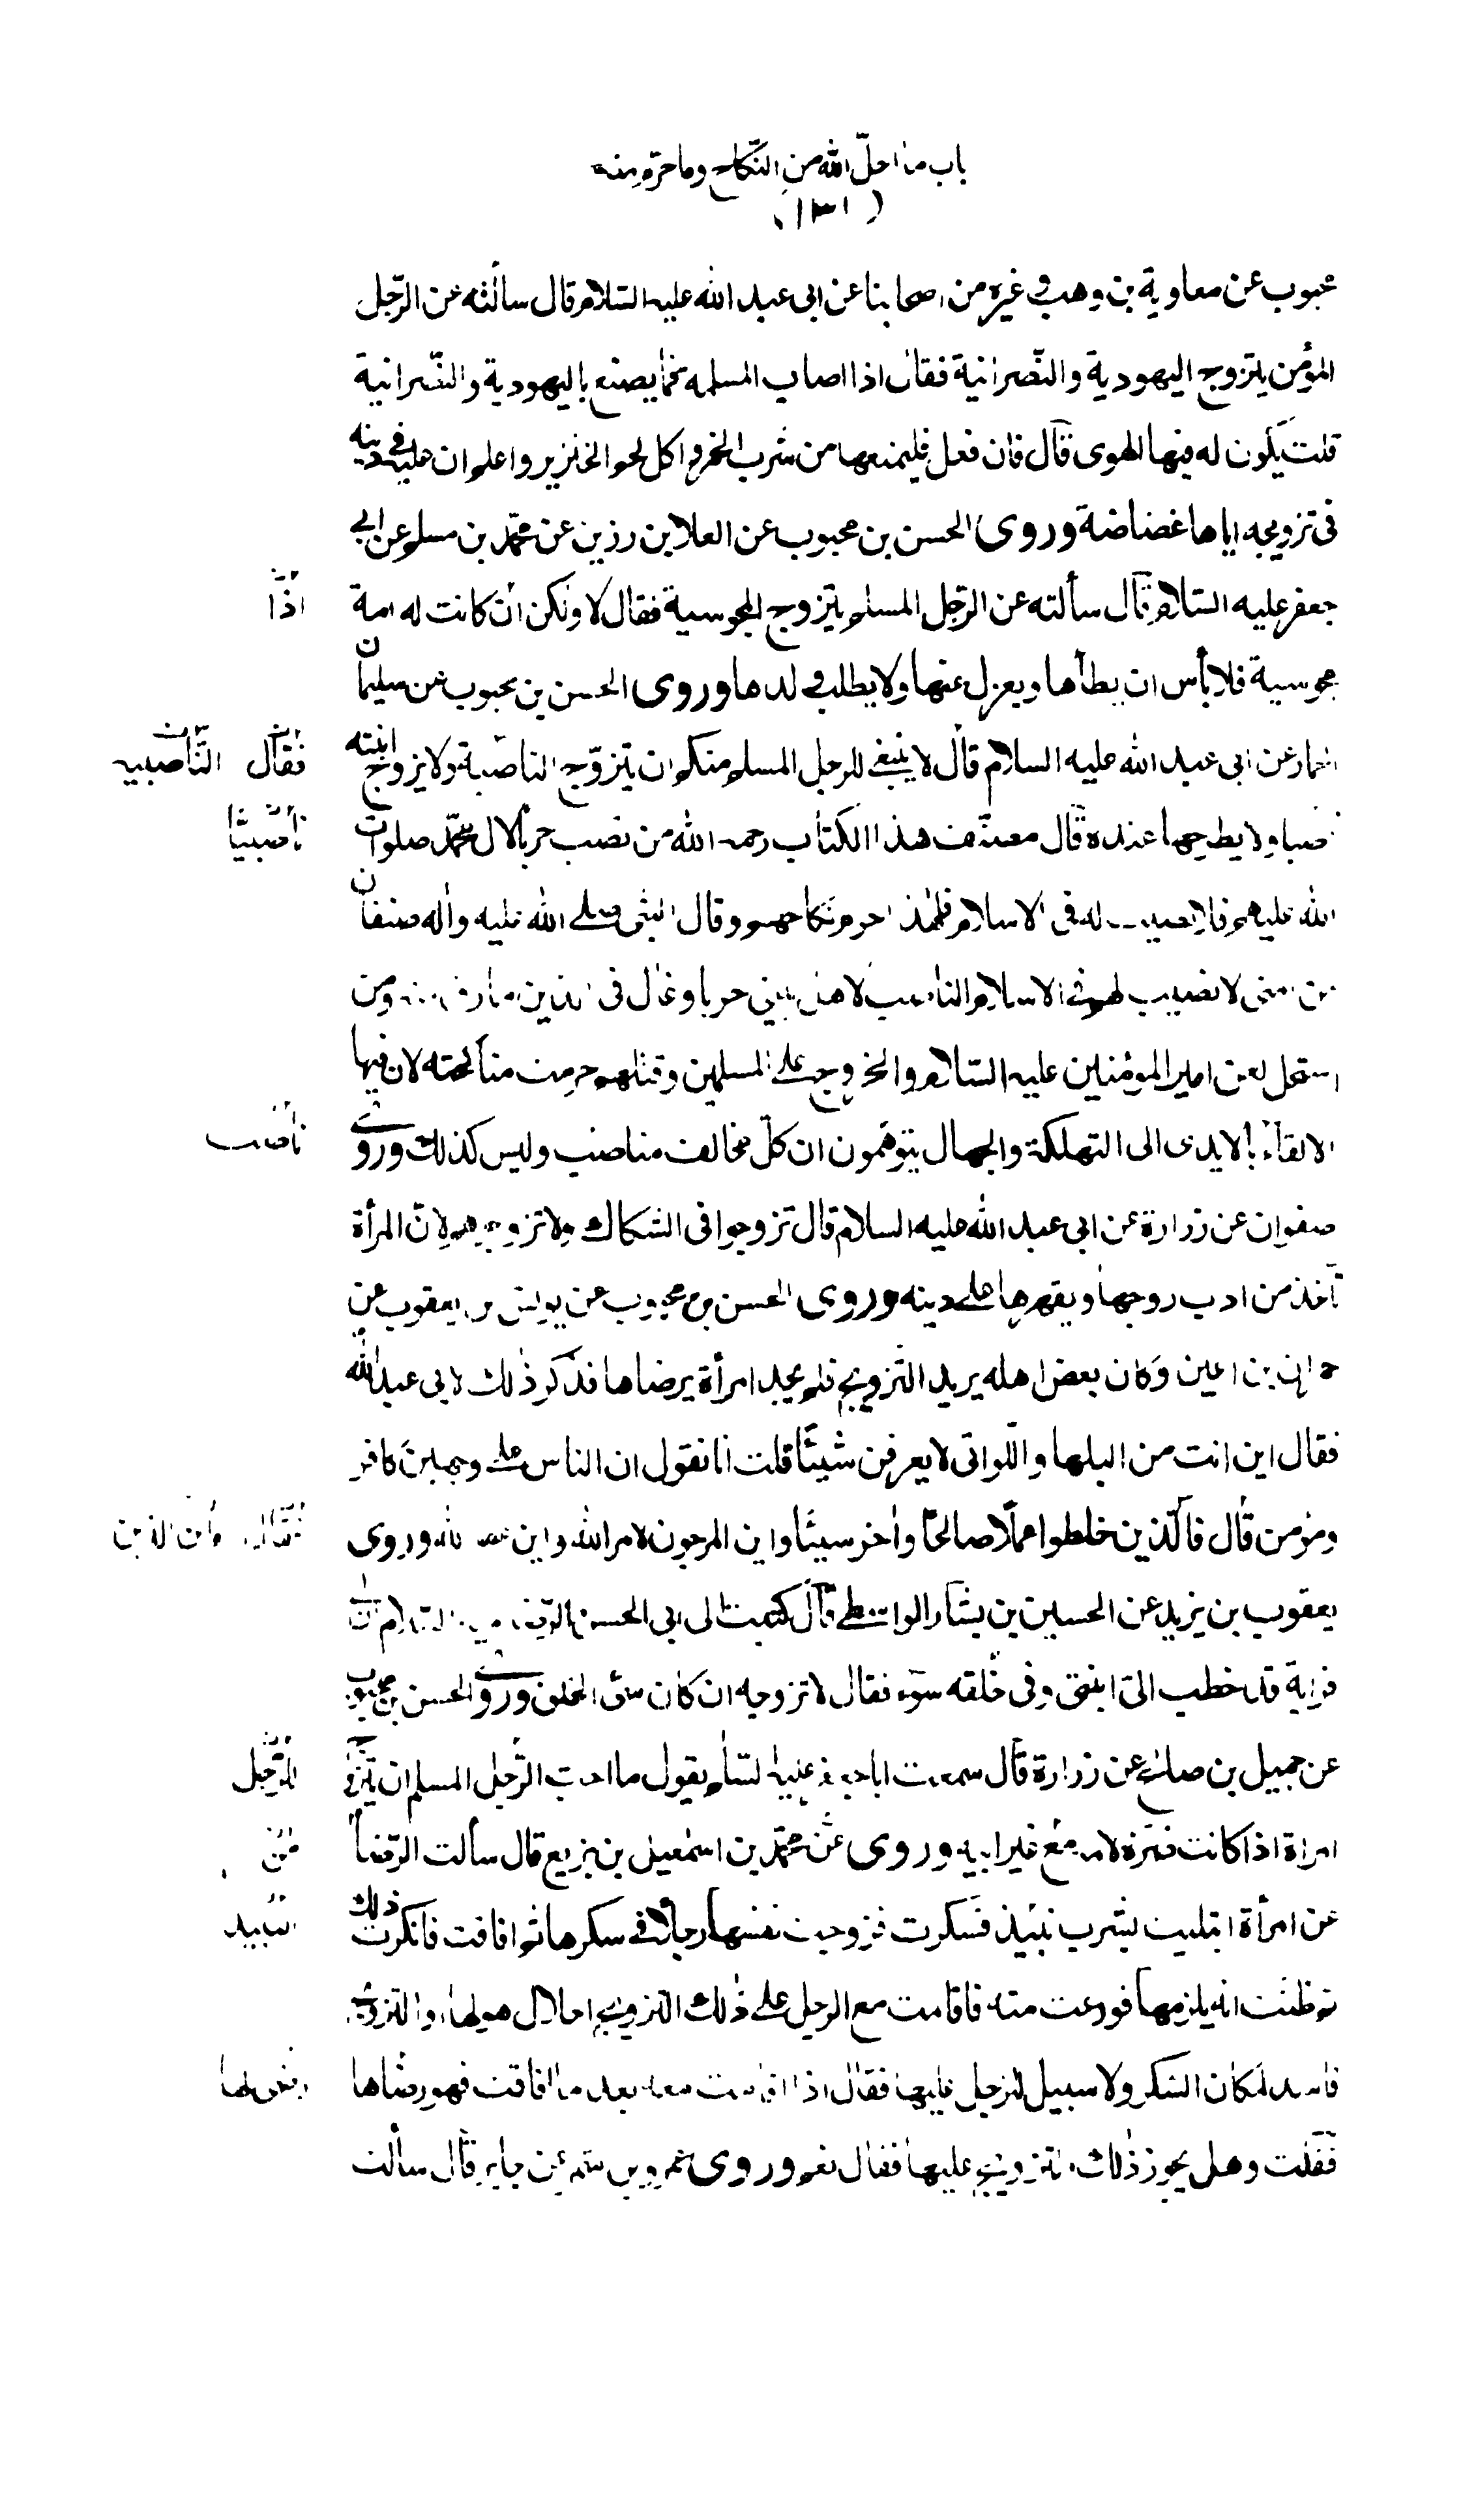 باب ما احلّ الله من النّكاح وما حرّم منه
(١٣١)
محبوب عن معاوية بن وهب وغيره من اصحابنا عن ابى عبد الله عليه السّلام قال سألته عن الرّجل
المؤمن يتزوج اليهودية والنّصرانية فقال اذا اصاب المسلمة فما يصنع باليهودية والنّصرانية
قلت يكون له فيها الهوى قال فان فعل فليمنعها من شرب الخمر واكل لحم الخنزير واعلم ان عليه فى دينه
فى تزويجه اياها غضاضة وروى الحسن بن محبوب عن العلا بن رزين عن محمّد بن مسلم عن ابي
جعفر عليه السّلام قال سألته عن الرّجل المسلم يتزوج المجوسية فقال لا ولكن ان كانت له امة
اذا
مجوسية فلا بأس ان يطأها ويعزل عنها ولا يطلب ولدها وروى الحسن بن محبوب عن سليمان
الحمار عن ابى عبد الله عليه السلام قال لا ينبغى للرجل المسلم منكم ان يتزوّج الناصبة ولا يزوج ابنته
فقال النّاصبيه
ناصبا ولا يطرحها عنده قال مصنّف هذا الكتاب رحمه الله من نصب حربا لال محمّد صلوات
ناصبيّا
الله عليهم فلا نصيب له فى الاسلام فلهذا حرم نكاحهم وقال النبى صلى الله عليه واله صنفان
من امتى لا نصيب لهم فى الاسلام الناصب لاهل بيتى حربا وغال فى الدين مارق منه ومن
استحل لعن امير المؤمنين عليه السّلام والخروج على المسلمين وقتلهم حرمت مناكحته لان فيها
الالقاء بالايدى الى التهلكة والجهال يتوهّمون ان كلّ مخالف مناصب وليس كذلك وروى
ناصب
صفوان عن زرارة عن ابى عبد الله عليه السلام قال تزوجوا فى الشكاك ولا تزوجوهم لانّ المرأة
تأخذ من ادب زوجها ويقهرها على دينه وروى الحسن بن محبوب عن يونس بن يعقوب عن
حمران بن اعين وكان بعض اهله يريد التّزويج فلم يجد امرأة يرضاها فذكر ذلك لابى عبد الله
فقال اين انت من البلها واللّواتى لا يعرفن شيئا قلت انا نقول ان الناس على وجهين كافر
ومؤمن قال فالّذين خلطوا عملا صالحا واخر سيئا واين المرجون لامر الله واين عفو الله وروى
فقال واين الذين
يعقوب بن يزيد عن الحسين بن بشار الواسطى قال كتبت الى ابى الحسن الرّضا عليه السّلام ان لى
قرابة قد خطب الىّ ابنتى وفى خلقه سوء فقال لا تزوجه ان كان سئ الخلق وروى الحسن بن محبوب
عن جميل بن صالح عن زرارة قال سمعت ابا جعفر عليه السّلم يقول ما احب الرّجل المسلم ان يتزوج
للرّجل
امراة اذا كانت ضرّة لامه مع غير ابيه وروى عن محمّد بن اسمعيل بن بزيع قال سألت الرّضا
عن امرأة ابتليت بشرب نبيذ فسكرت فزوجت نفسها رجلا فى سكرها ثم افاقت فانكرت ذلك
النبيذ
ثم ظنت انه يلزمها فورعت منه فاقامت مع الرجل على ذلك التزويج احلال هو لها او التزويج
فاسد لمكان السّكر ولا سبيل للرّجل عليها فقال اذا اقامت معه بعد ما افاقت فهو رضاها
فقلت وهل يجوز ذلك التزويج عليها فقال نعم وروى عمرو بن شمر عن جابر قال سألت